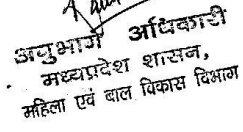 अनुभाग अधिकारी
मध्यप्रदेश शासन,
महिला एवं बाल विकास विभाग